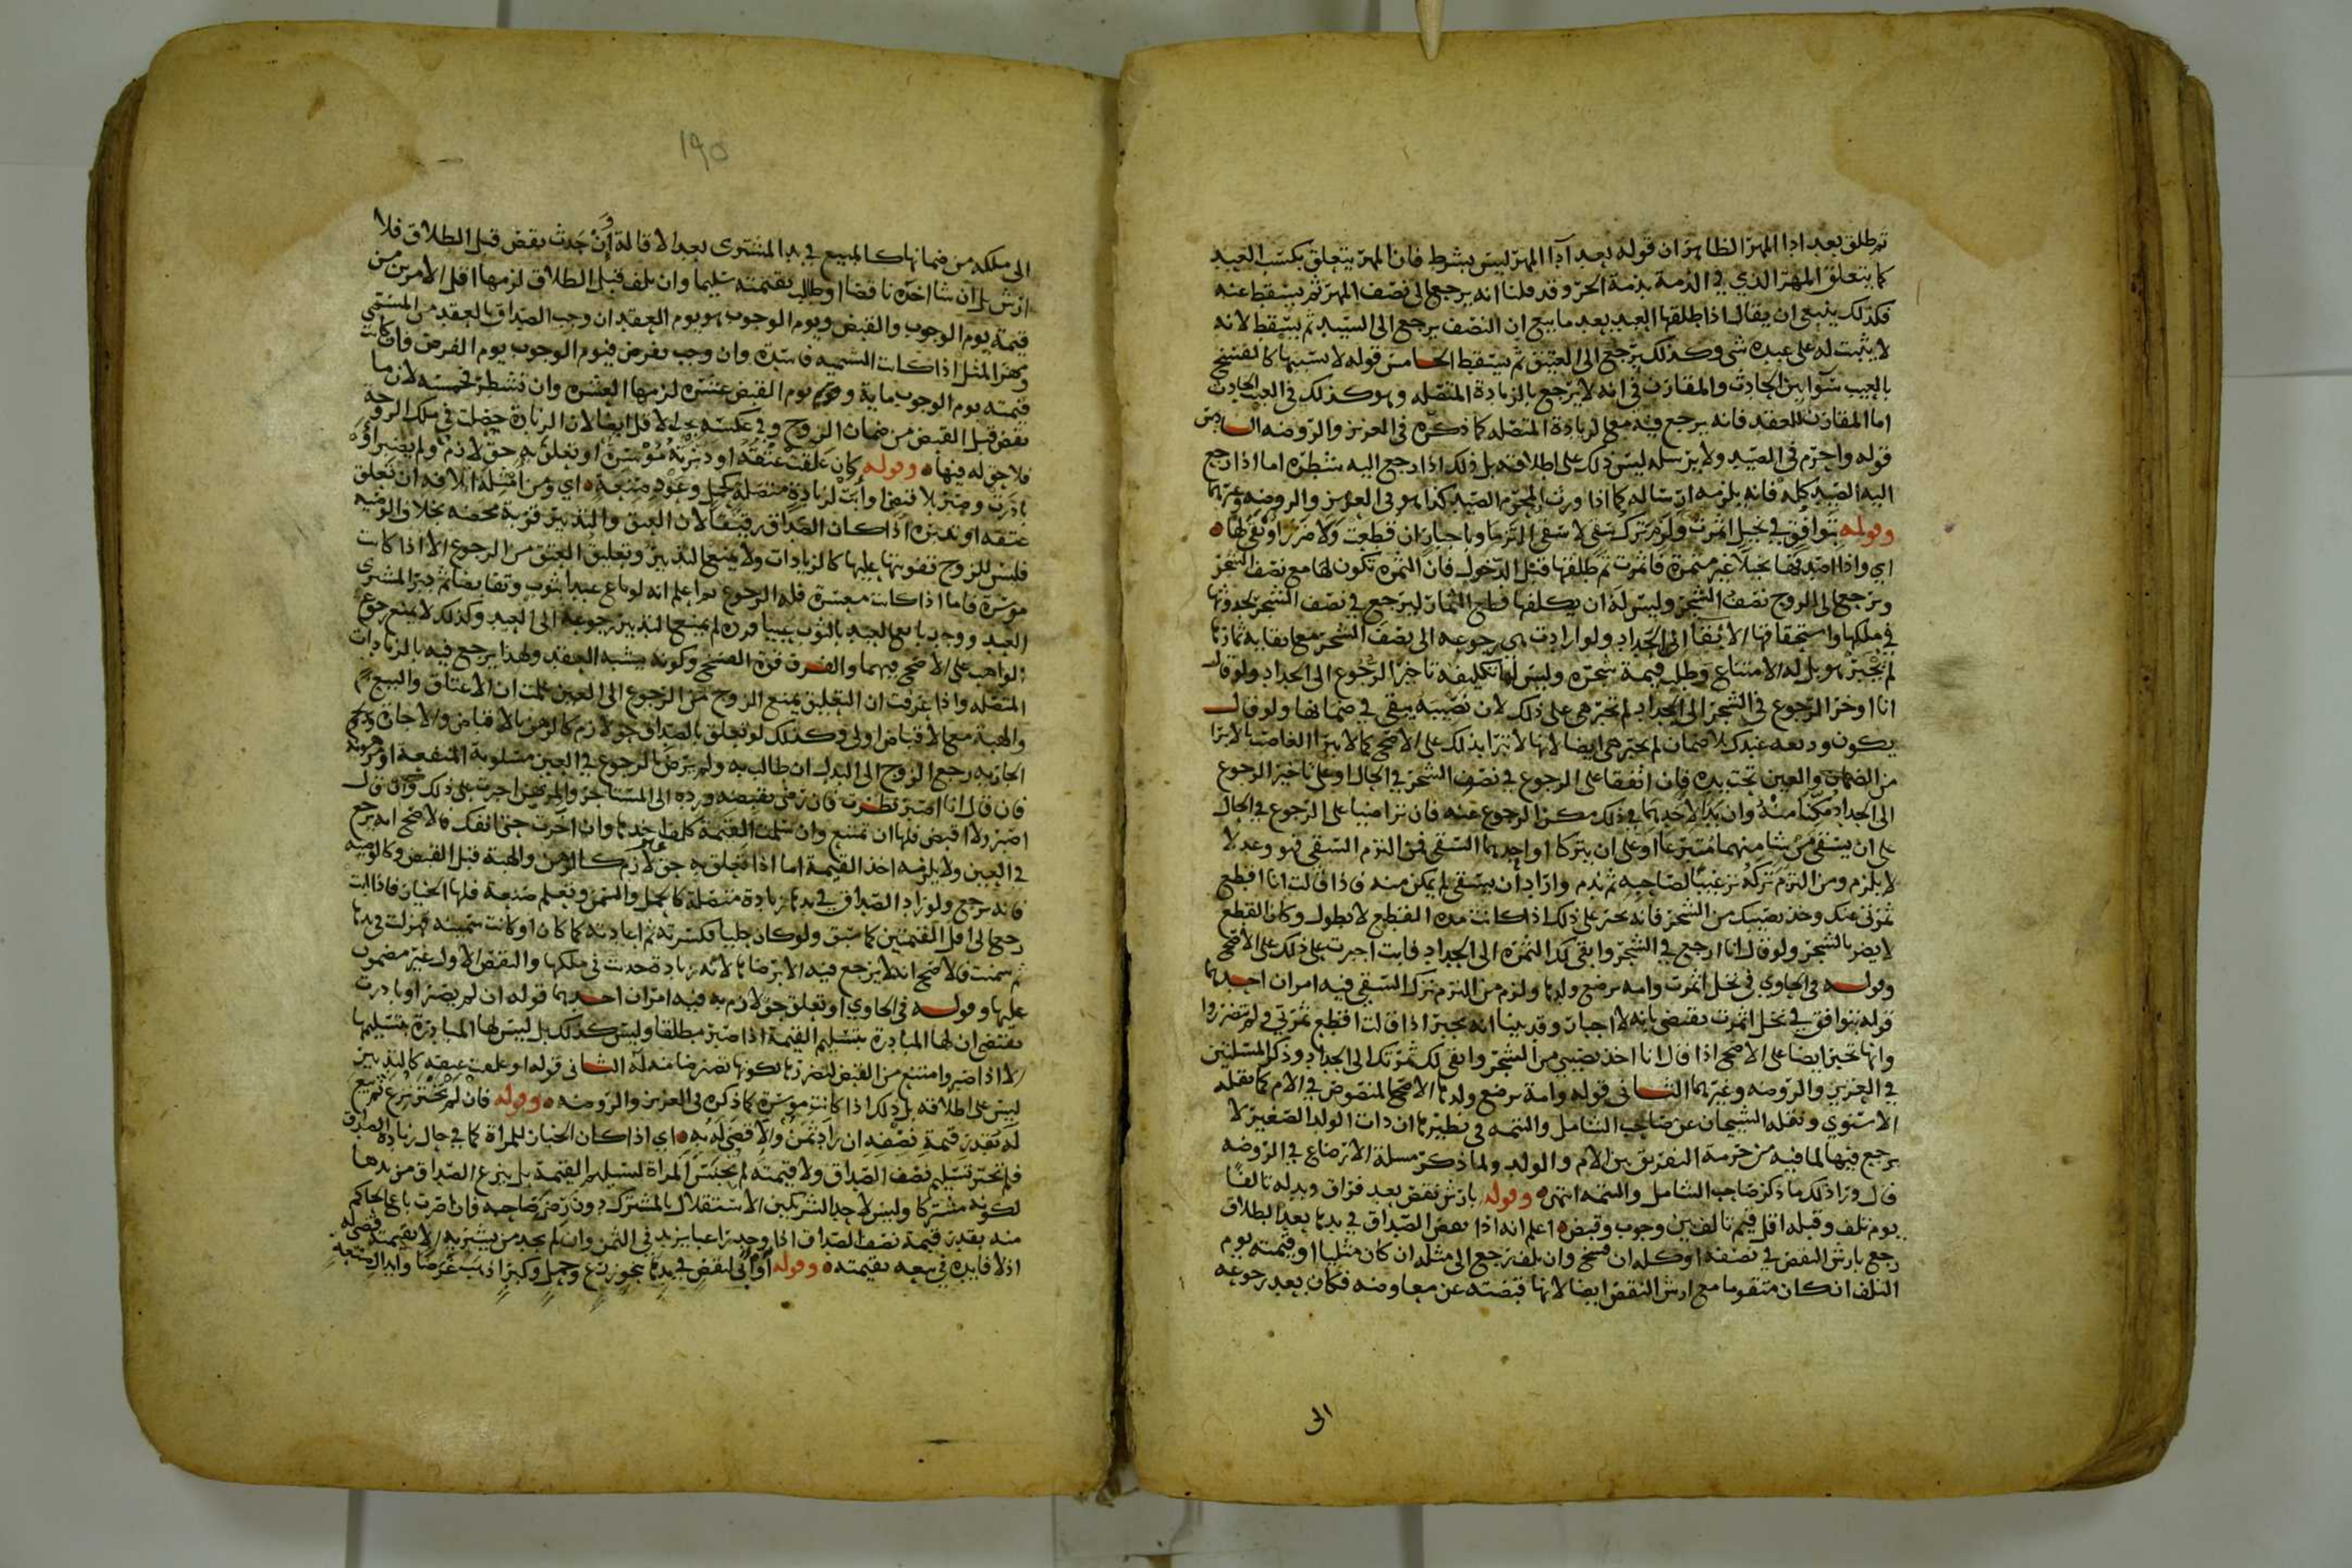 ثم طلق بعد ادا المهر الظاهر ان قوله بعد ادآ المهر ليس بشرط فان المهر يتعلق بكسب العبد
كما يتعلق المهر الذي في الذمة بذمة الحر وقد قلنا انه يرجع الى نصف المهر ثم يسقط عنه
فكذلك ينبغي ان يقال اذا طلقها العبد بعد ما بيع ان النصف يرجع الى السيد ثم يسقط لانه
لا يثبت له على عبده شي وكذلك يرجع الى العتيق ثم يسقط الخامس قوله لا سببها كالفسخ
بالعيب سوآ بين الحادث والمقارن في انه لا يرجع بالزيادة المتصله وهو كذلك في العيب الحادث
اما المقارن للعقد فانه يرجع فيه مع الزيادة المتصله كما ذكره في العزيز والروضه السادس
قوله واحرم في الصيد ولا يرسله ليس ذلك على اطلاقه بل ذلك اذا رجع اليه شطره اما اذا رجع
اليه الصيد كله فانه يلزمه ارساله كما اذا ورث المحرم الصيد كذا هو في العزيز والروضه وغيرهما
وقوله بتوافق في نخيل اثمرت ولزم ترك سقي لا سقي التزما وباجبار ان قطعت ولا ضرر او بقي لها
اي واذا اصدقها نخيلا غير مثمرة فاثمرت ثم طلقها قبل الدخول فان الثمره تكون لها مع نصف الشجر
ويرجع الى الزوج نصف الشجر وليس له ان يكلفها قطع الثمار ليرجع في نصف الشجر لحدوثها
في ملكها واستحقاقها الابقآ الى الجداد ولو ارادت هي رجوعه الى نصف الشجر مع بقايه ثمارها
لم يجبر هو بل له الامتناع وطلب قيمة شجره وليس لها تكليفه تاخير الرجوع الى الجداد ولو قال
انا اوخر الرجوع في الشجر الى الجداد لم تجبر هي على ذلك لان نصيبه يبقي في ضمانها ولو قال
يكون وديعه عندك بلا ضمان لم تجبر هي ايضا لانها لا تبرا بذلك على الاصح كما لا يبرا الغاصب بالابرا
من الضمان والعين تحت يده فان اتفقا على الرجوع في نصف الشجر في الحال او على تاخير الرجوع
الى الجداد مكنا منه وان بدا لاحدهما في ذلك مكن الرجوع عنه فان تراضيا على الرجوع في الحال
على ان يسقي من شا منهما متبرعا او على ان يتركا او احدهما السقي فمن التزم السقي فهو وعد لا
لا يلزم ومن التزم تركه ترغيبا لصاحبه ثم ندم واراد ان يسقي لم يمكن منه فاذا قالت انا اقطع
ثمرتي عنك وخذ نصيبك من الشجر فانه يجبر على ذلك اذا كانت مدة القطع لا تطول وكان القطع
لا يضر بالشجر ولو قال انا ارجع في الشجر وابقي لك الثمره الى الجداد فابت اجبرت على ذلك على الاصح
وقوله في الحاوي في نخل اثمرت وامه ترضع ولدها ولزم من التزم ترك السقي فيه امران احدهما
قوله بتوافق في نخل اثمرت يقتضي بانه لا اجبار وقد بينا انه يجبر اذا قالت اقطع ثمرتي ولم تضرروا
وانها تجبر ايضا على الاصح اذا قال انا اخذ نصيبي من الشجر وابقي لك ثمرتك الى الجداد وذكر المسلتين
في العزيز والروضه وغيرهما الثاني قوله وامة ترضع ولدها الاصح المنصوص في الام كما نقله
الاسنوي ونقله الشيخان عن صاحب الشامل والتتمه في نظيرها ان ذات الولد الصغير لا
يرجع فيها لما فيه من حرمة التفريق بين الام والولد ولما ذكر مسلة الارضاع في الروضه
قال وزاد ذلك ما ذكر صاحب الشامل والتتمه انتهى وقوله بارش نقص بعد فراق وبدله تالفا
يوم تلف وقبله اقل قيم تالف بين وجوب وقبض اعلم انه اذا نقص الصداق في يدها بعد الطلاق
رجع بارش النقص في نصفه او كله ان فسخ وان تلف رجع الى مثله ان كان مثليا او قيمته يوم
التلف ان كان متقوما مع ارش النقص ايضا لانها قبضته عن معاوضه فكان بعد رجوعه
الى
١٩٥
الى ملكه من ضمانها كالمبيع في يد المشتري بعد الاقالة وان حدث نقص قبل الطلاق فلا
ارش بل ان شا اخذه ناقصا او طالب بقيمته سليما وان تلف قبل الطلاق لزمها اقل الامرين من
قيمة يوم الوجوب والقبض ويوم الوجوب هو يوم العقد ان وجب الصداق بالعقد من المسمى
ومهر المثل اذا كانت التسميه فاسده وان وجب بفرض فيوم الوجوب يوم الفرض فان كانت
قيمته يوم الوجوب ماية ويوم القبض عشره لزمها العشره وان تشطر فخمسه لان ما
نقص قبل القبض من ضمان الزوج وفي عكسه يجب الاقل ايضا لان الزيادة حصلت في ملك الزوجة
فلا حق له فيها وقوله كان علقت عتقه او دبرته موسرة او تعلق به حق لازم ولم يصبر او
بادرت وصبر بلا قبض او ابت لزيادة متصلة كحمل وعود صنعة اي ومن امثلة اتلافه ان تعلق
عتقه او تدبره اذا كان الصداق رقيقا لان العتق والتدبير قربة محضه بخلاف الوصيه
فليس للزوج تفويتها عليها كالزيادات ولا يمنع التدبير وتعليق العتق من الرجوع الا اذا كانت
موسرة فاما اذا كانت معسرة فله الرجوع واعلم انه لو باع عبدا بثوب وتقابضا ثم دبر المشتري
العبد ووجد بايع العبد بالثوب عيبا فرده لم يمنع التدبير رجوعه الى العبد وكذلك لا يمنع رجوع
الواهب على الاصح فيهما والفرق قوة الفسخ وكونه يشبه العقد ولهذا يرجع فيه بالزيادات
المتصله واذا عرفت ان التعليق يمنع الزوج من الرجوع الى العين علمت ان الاعتاق والبيع
والهبة مع الاقباض اولى وكذلك لو تعلق بالصداق حق لازم كالرهن بالاقباض والاجارة وحكم
الجاريه رجع الزوج الى البدل ان طالب به ولم يرض بالرجوع في العين مسلوبة المنفعة او مرهونة
فان قال انا اصبر نظرت فان رضي بقبضه ورده الى المستاجر والمرتهن اجبرت على ذلك وان قال
اصبر ولا اقبض فلها ان تمتنع وان سلمت القيمة كلف اخذها وان اخرت حتى انفك فالاصح انه يرجع
في العين ولا يلزمه اخذ القيمة اما اذا تعلق به حق غير لازم كالرهن والهبة قبل القبض وكالوصيه
فانه يرجع ولو زاد الصداق في يدها زيادة متصلة كالحمل والسمن وتعلم صنعة فلها الخيار فاذا ابت
رجع الى اقل القيمتين كما سبق ولو كان حليا فكسرته ثم اعادته كما كان او كانت سمينه فهزلت في يدها
ثم سمنت فالاصح انه لا يرجع فيه الا برضاها لانه زيادة حدثت في ملكها والنقص الاول غير مضمون
عليها وقوله في الحاوي او تعلق حق لازم به فيه امران احدهما قوله ان لم يصبر او بادرت
يقتضي ان لها المبادرة بتسليم القيمة اذا صبر مطلقا وليس كذلك بل ليس لها المبادرة بتسليمها
الا اذا صبر وامتنع من القبض لتضررها بكونها تصير ضامنة له الثاني قوله او علقت عتقه كالتدبير
ليس على اطلاقه بل ذلك اذا كانت موسرة كما ذكره في العزيز والروضه وقوله فان لم تختر نزع ثم بيع
له بقدر قيمة نصفه ان زاد ثمن والا قضي له به اي اذا كان الخيار للمراة كما في حال زيادة الصداق
فلم تختر تسليم نصف الصداق ولا قيمته لم تحبس المراة لتسليم القيمة بل ينزع الصداق من يدها
لكونه مشتركا وليس لاحد الشريكين الاستقلال بالمشترك دون رضى صاحبه فان اصرت باع الحاكم
منه بقدر قيمة نصف الصداق اذا وجد راغبا يزيد في الثمن وان لم يجد من يشتريه الا بقيمته قضى له
اذ لا فايدة في بيعه بقيمته وقوله او ابى لنقص في يدها بجوز زرع وحمل وكبر اذهب غرضا وابدال صنعة